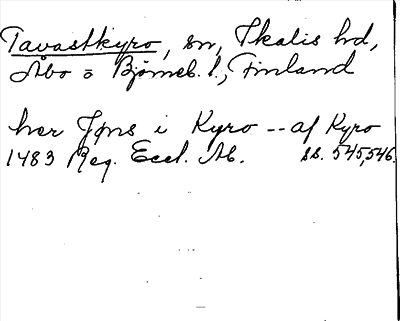 Tavastkyro, sn, Ikalis hd,
Åbo o Björneb. l., Finland
her Jøns i Kyro -- af Kyro
1483 Reg. Eccl. Ab. ss. 545,546.